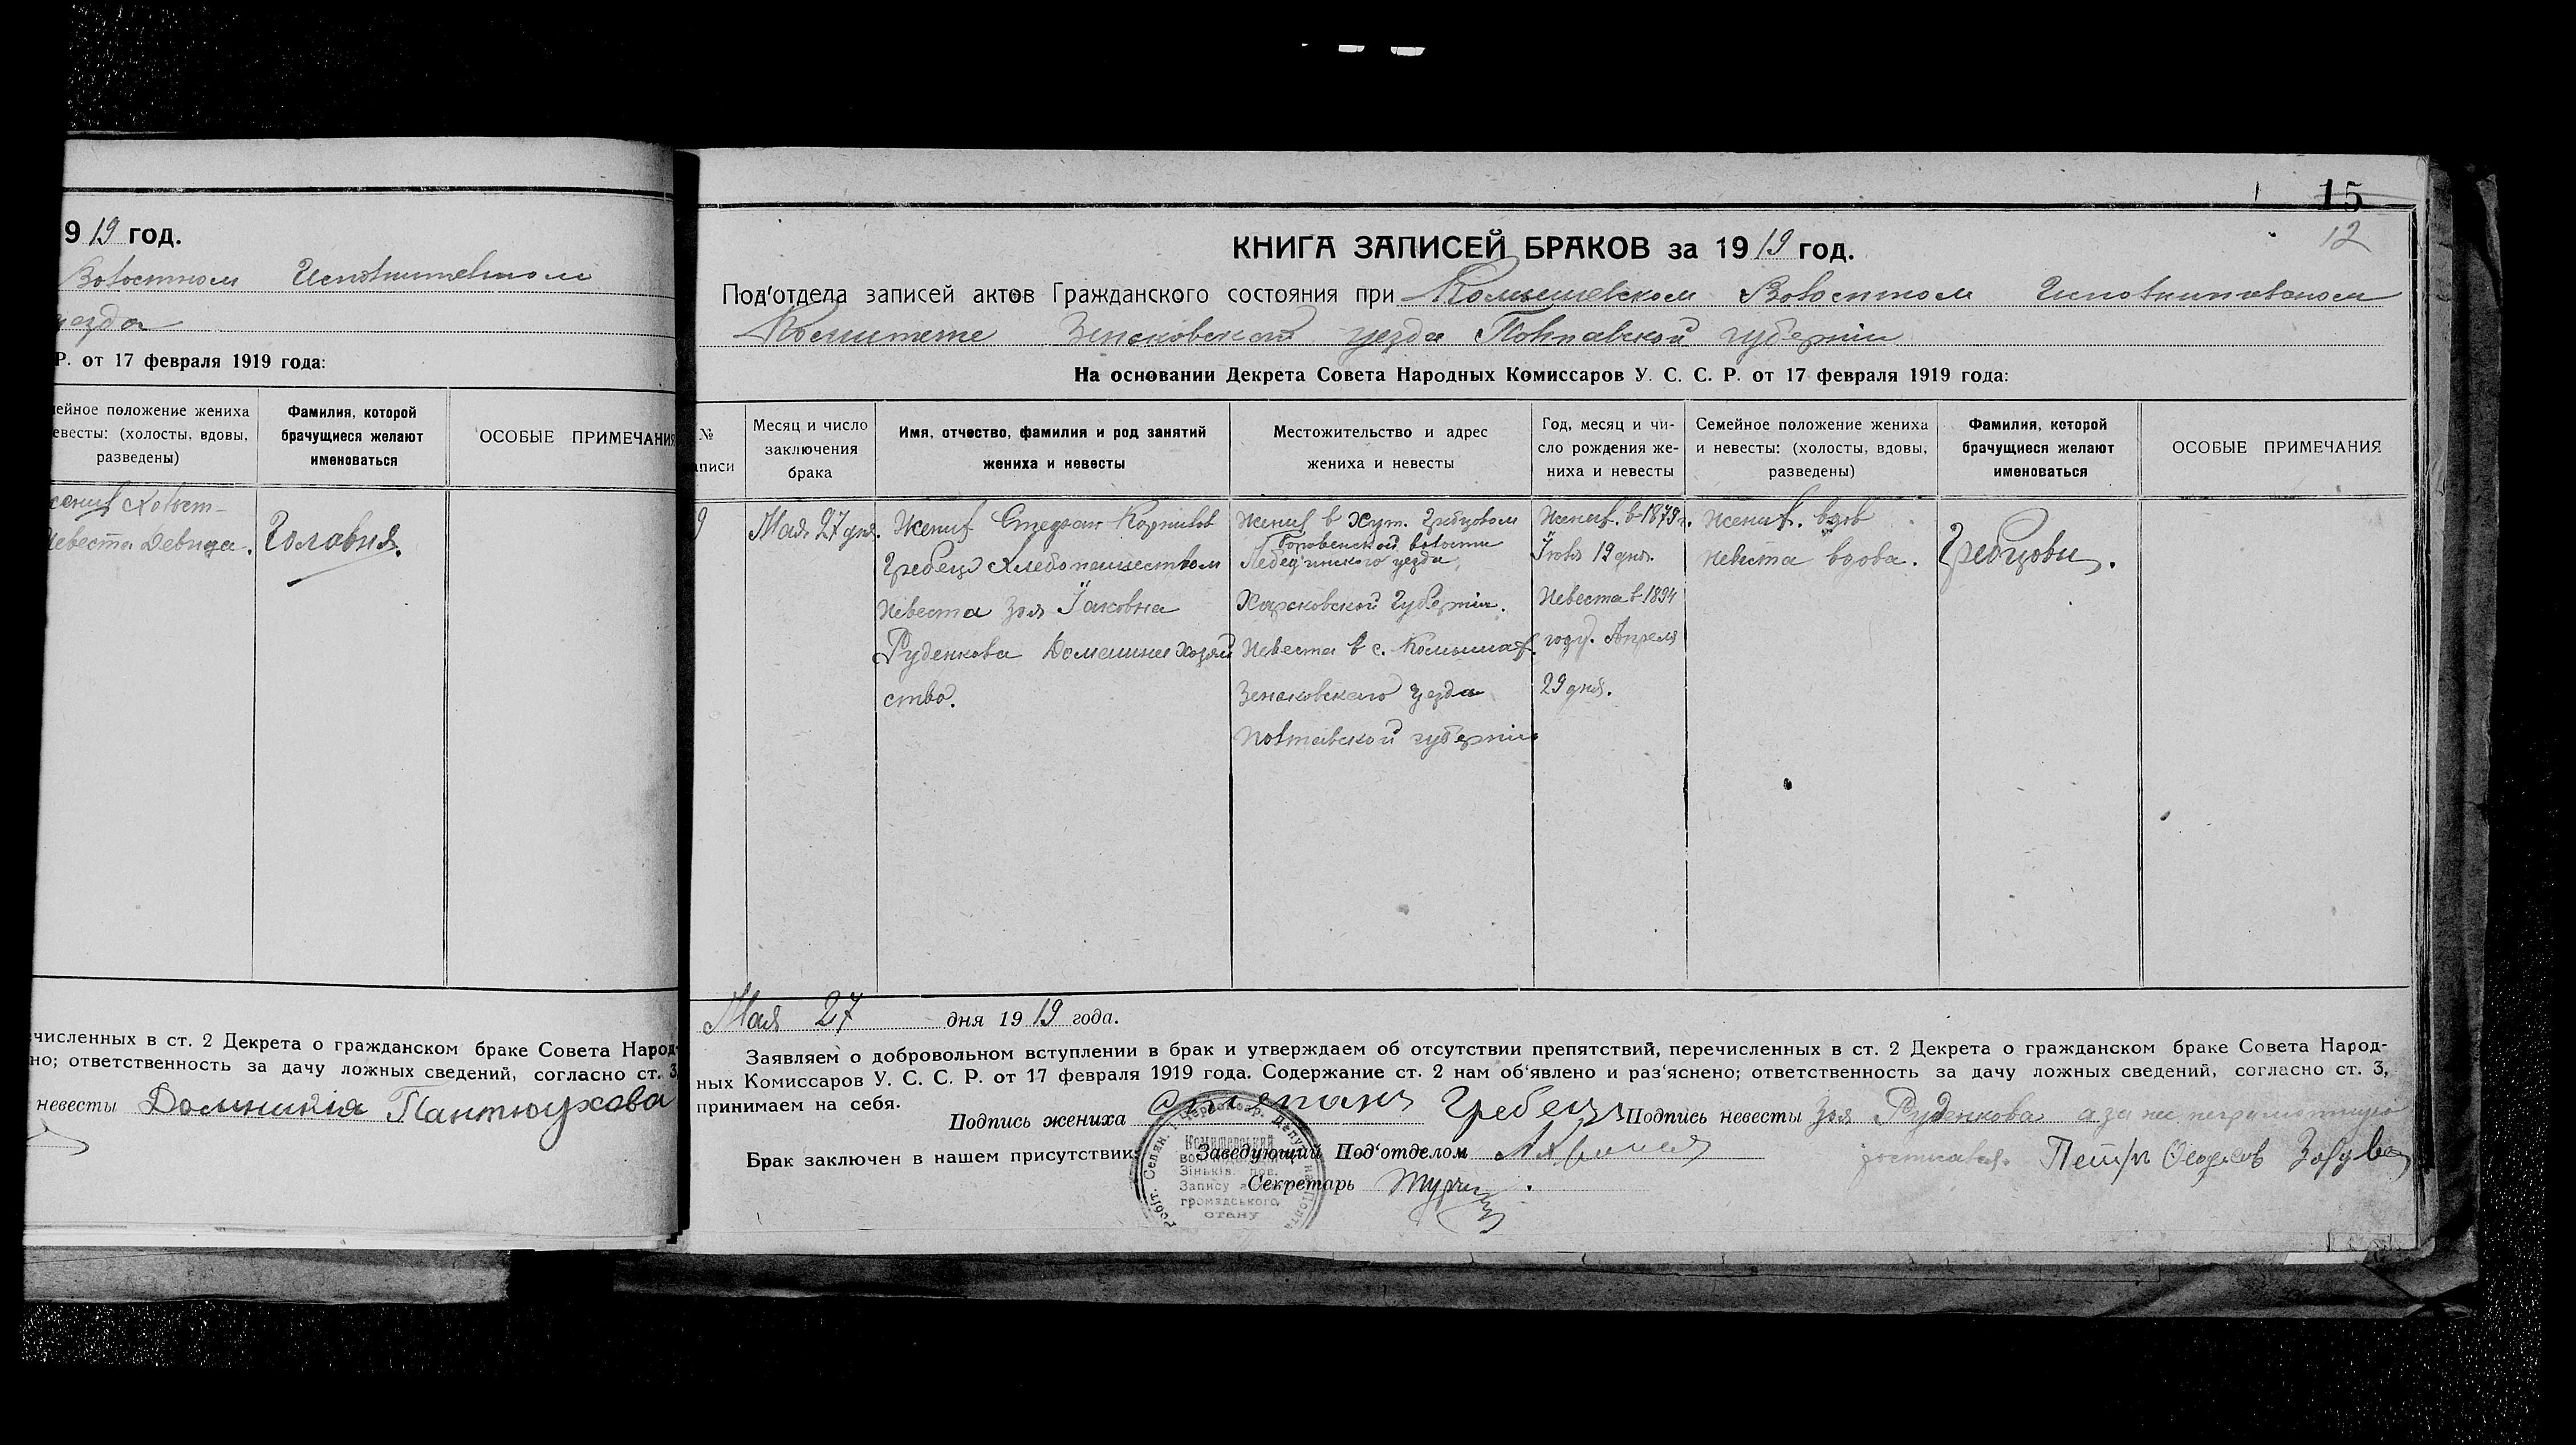 9 19 год.
Волостном Исполнительном
уезда
Р. от 17 февраля 1919 года:
ейное положение жениха
евесты: (холосты, вдовы,
разведены)
Фамилия, которой
брачущиеся желают
именоваться
ОСОБЫЕ ПРИМЕЧАНИЯ
жених холост-
невеста девица.
Головня.
численных в ст. 2 Декрета о гражданском браке Совета Народ-
но; ответственность за дачу ложных сведений, согласно ст. 3
невесты Домникія Пантюухова
15
12
КНИГА ЗАПИСЕЙ БРАКОВ за 1919 год.
Под'отдела записей актов Гражданского состояния при Комышевском Волостном Исполнительном
Комитете Зеньковского уезда Полтавской губернии
На основании Декрета Совета Народных Комиссаров У. С. С. Р. от 17 февраля 1919 года:
№
аписи
Месяц и число
заключения
брака
Имя, отчество, фамилия и род занятий
жениха и невесты
Местожительство и адрес
жениха и невесты
Год, месяц и чи-
сло рождения же-
ниха и невесты
Семейное положение жениха
и невесты: (холосты, вдовы,
разведены)
Фамилия, которой
брачущиеся желают
именоваться
ОСОБЫЕ ПРИМЕЧАНИЯ
9
Мая 27 дня.
Жених Стефан Корнилов
Гребец Хлебопашеством
Невеста Зоя Іаковна
Руденкова Домашнее хозяй
ство.
Жених в Хут. Гребцовом
волости
Лебединского уезда,
Харковской Губернии.
Невеста в с. Комышах.
Зеньковского уезда
Полтавской губернии
Жених. в 1879 г.
Іюля 19 дня.
Невеста в 1894
году. Апреля
29 дня.
Жених. вдов
Невеста вдова.
Гребцовы.
Мая 27 дня 1919 года.
Заявляем о добровольном вступлении в брак и утверждаем об отсутствии препятствий, перечисленных в ст. 2 Декрета о гражданском браке Совета Народ-
ных Комиссаров У. С. С. Р. от 17 февраля 1919 года. Содержание ст. 2 нам об'явлено и раз'яснено; ответственность за дачу ложных сведений, согласно ст. 3,
принимаем на себя.
Подпись жениха Степанъ Гребець Подпись невесты Зоя Руденкова а за нее неграмотную
Брак заключен в нашем присутствии: Заведующий Под'отделом
росписался. Петръ
Секретарь
Комишевський
Зіньків. пов.
Запису
громадського
стану